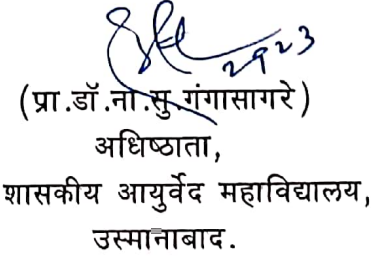 (प्रा.डॉ.ना.सु.गंगासागरे)
अधिष्ठाता,
शासकीय आयुर्वेद महाविद्यालय,
उस्मानाबाद.